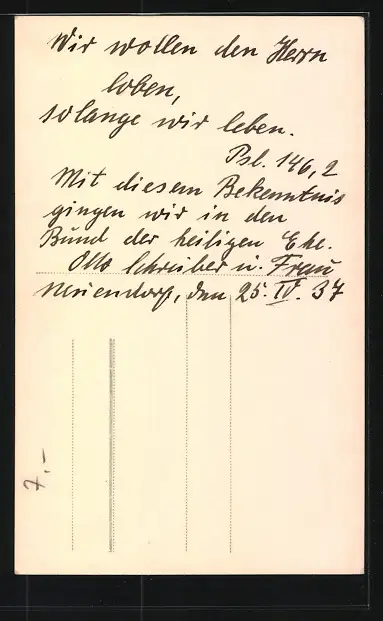 Wir wollen den Herrn
loben,
solange wir leben.
Psl. 146,2
Mit diesem Bekenntnis
gingen wir in den
Bund der heiligen Ehe.
Otto Schreiber u. Frau
Neuendorf, den 25. IV. 37
7.-